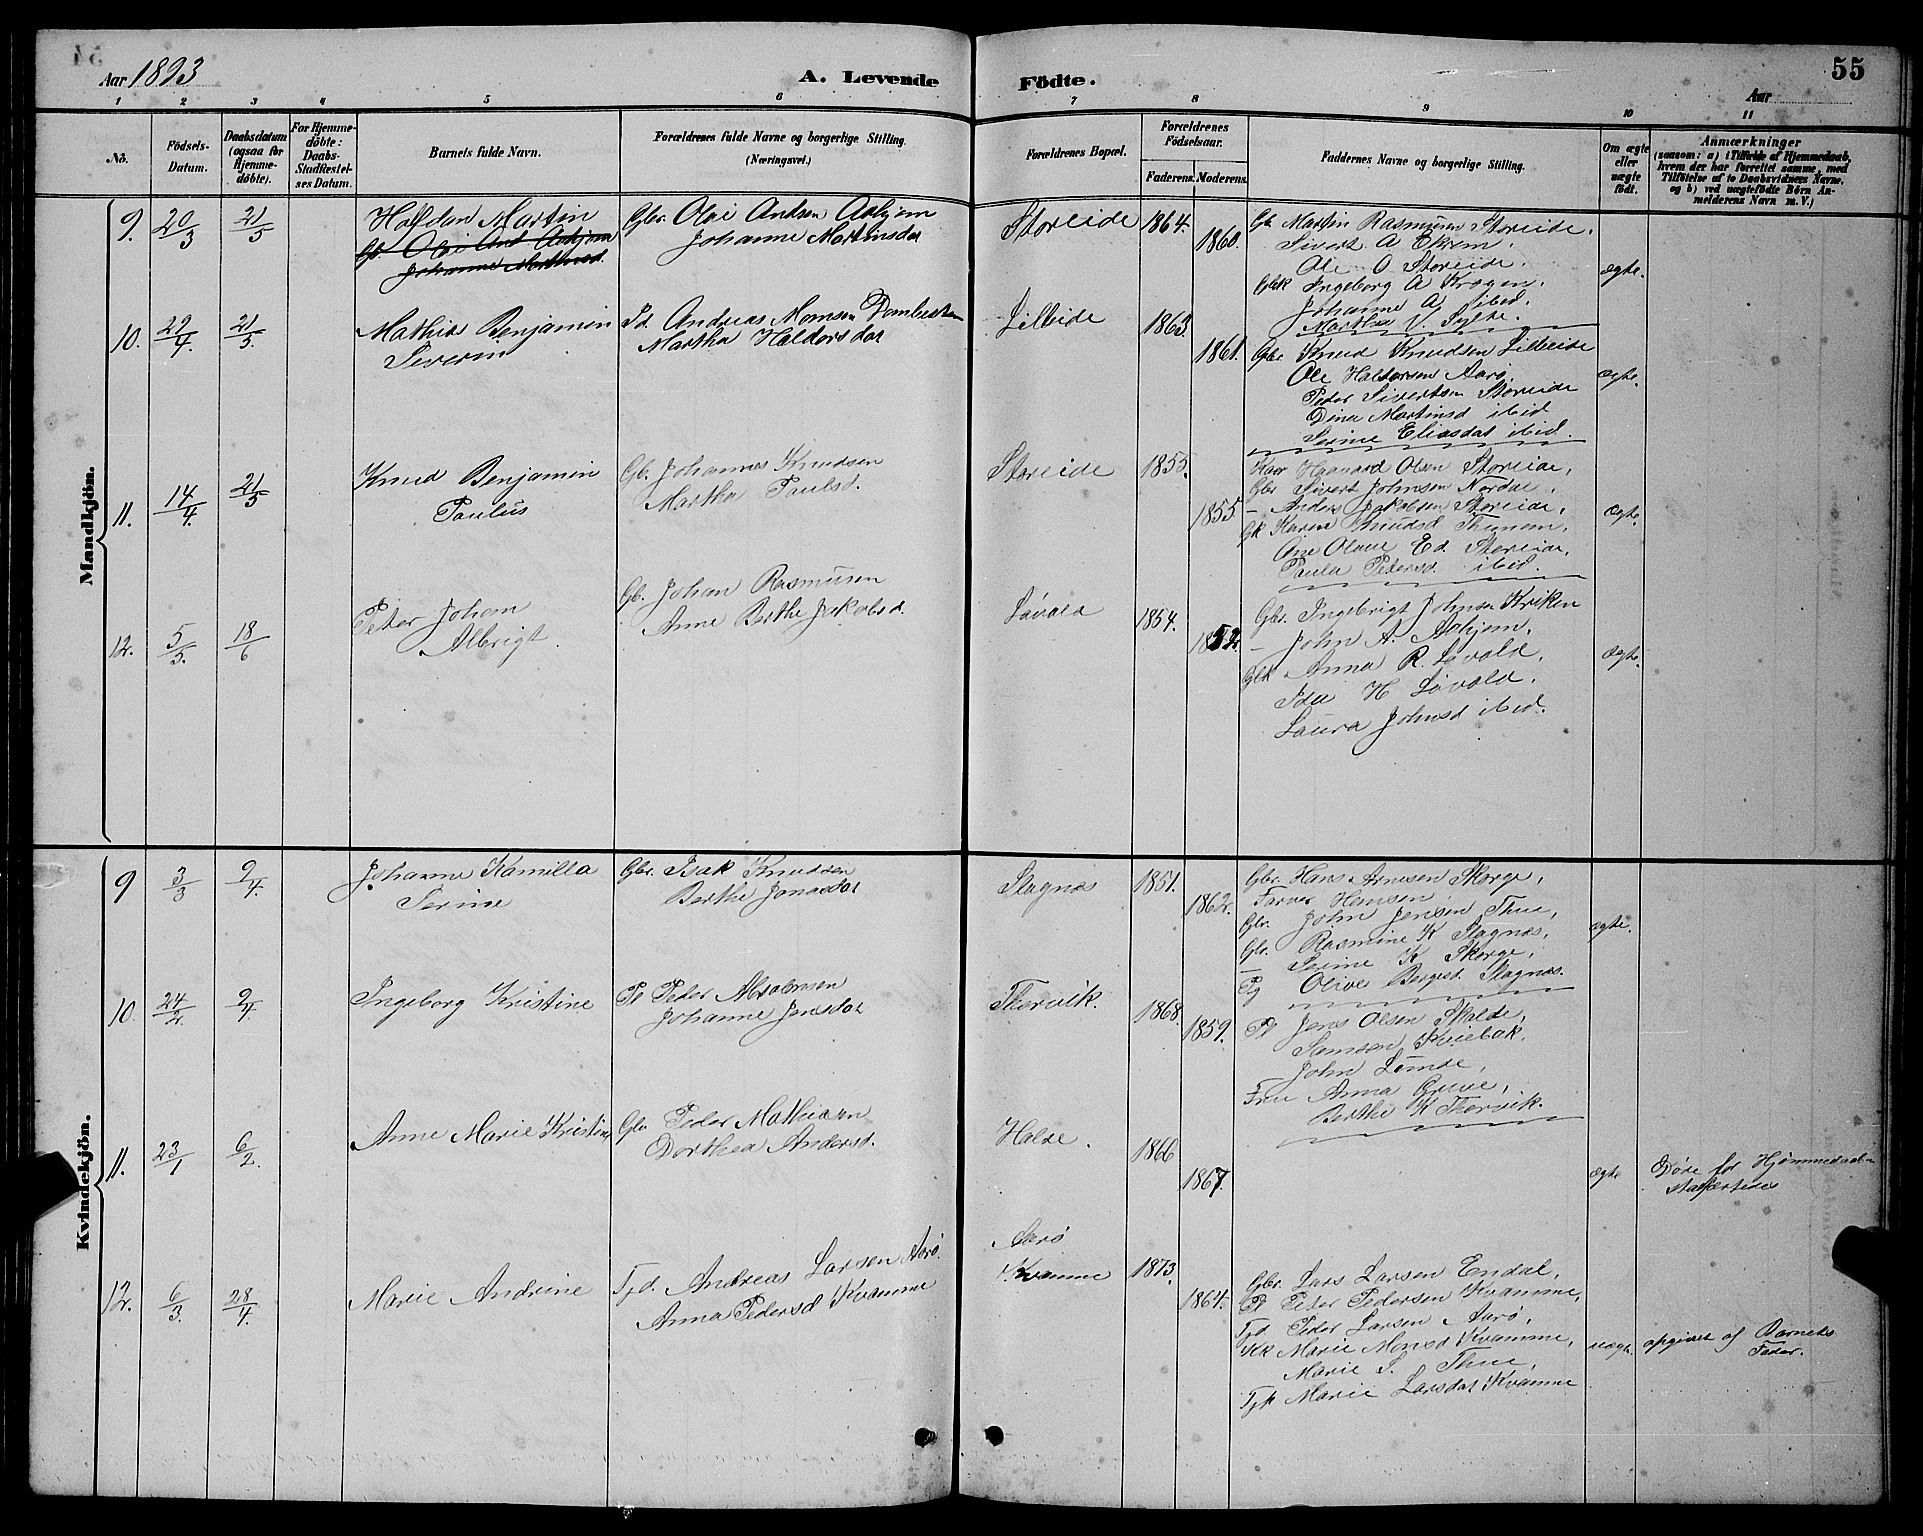 Aar 1893
A. Levende Födte.
55
Aar
1 2 3 4 5 6 7 8 9 10 11
No.
Födsels-Datum.
Daabsdatum (ogsaa for Hjemme-döbte).
For Hjemme-döbte: Daabs-Stadfæstel-ses Datum.
Barnets fulde Navn.
Forældrenes fulde Navne og borgerlige Stilling. (Næringsvei.)
Forældrenes Bopæl.
Forældrenes Födselsaar.
Faderens. Moderens.
Faddernes Navne og borgerlige Stilling.
Om ægte eller uægte födt.
Anmærkninger
(saasom: a) i Tilfælde af Hjemmedaab, hvem der har forrettet samme, med Tilföielse af to Daabsvidners Navne, og b) ved uægtefödte Börn Anmelderens Navn m. V.)
Mandkjön.
9. 20/3 21/5 Halfdan Martin
Gbr. Olai Andsen Aahjem
Johanne Martinsdat
Storeide 1864. 1860.
Gb. Martin Rasmusen Storeide.
Sivert A Ekrem.
Ole O Storeide.
Gbk Ingeborg A Krogen.
Johanne A ibid.
Martha V. Sylte.
ægte.
10. 29/4. 21/5 Mathias Benjamin
Severin
Id. Andreas Monsen Dombesten
Martha Haldorsdat
Lilleide 1863. 1861.
Gbr Knud Knudsen Lilleide
Ole Haldorsen Aarø.
Peder Sivertsen Storeide
Dina Martinsd ibid
Serine Eliasdat ibid.
Ægte.
11. 14/4. 21/5 Knud Benjamin
Paulus
Gb. Johannes Knudsen
Martha Paulsd.
Storeide 1855. 1855
Haavard Olsen Storeide,
Gbr Sivert Johnsen Nordal,
- Anders Jakobsen Storeide,
Gk Karen Knudsd
Ane Oline Ed. Storeide,
Paula Pedersd. ibid.
Ægte.
12. 5/5. 18/6 Peter Johan
Albrigt.
Gb. Johan Rasmusen
Anne Berthe Jakobsd.
Løvold 1854. 1852.
Gbr. Ingebrigt Johnsen Kriken
- John A. Aahjem.
Gbk Anna R. Løvold.
Ida H Løvold.
Laura Johnsd ibid.
Ægte.
Kvindekjön.
9 3/3 2/4. Johanne Kamilla
Serine
Gbr. Isak Knudsen
Berthe Jonasdat
Slagnæs 1851. 1862.
Gbr. Hans Arnesen Skorge,
Farver Hansen
Gbr. John Jensen Thue,
Gbr. Rasmine K Slagnæs,
- Serine K Skorge,
Pg Olive Bergsd. Slagnæs.
ægte.
10. 24/2. 2/4. Ingeborg Kristine
Pl Peder Absalonsen
Johanne Jensdat
Thorvik. 1868. 1859.
Pl Jens Olsen Skalde,
Samson Kviebak.
John Lunde,
Fru Anna Grue,
Berthe K Thorvik.
11. 23/1 6/2. Anne Marie Kristine
Gbr Peder Mathiasen
Dorthea Andersd.
Halse. 1866 1867.
ægte
Døde før Hjemmedaaben
stadfæstedes
12. 6/3. 28/4. Marie Andrine
Tjd. Andreas Larsen Aarø.
Anna Pedersd Kvamme
Aarø
Kvamme 1873. 1864.
Gbr. Lars Larsen Endal,
Pl Peter Pedersen Kvamme,
Tjd Peder Larsen Aarø,
Kk Marie Monsd Kvamme,
Marie S. Thue,
Tjk Marie Larsdat Kvamme
uægte.
opgivet af Barnets
Fader.